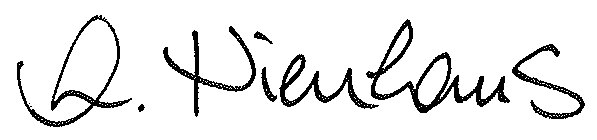 R. Nienhaus